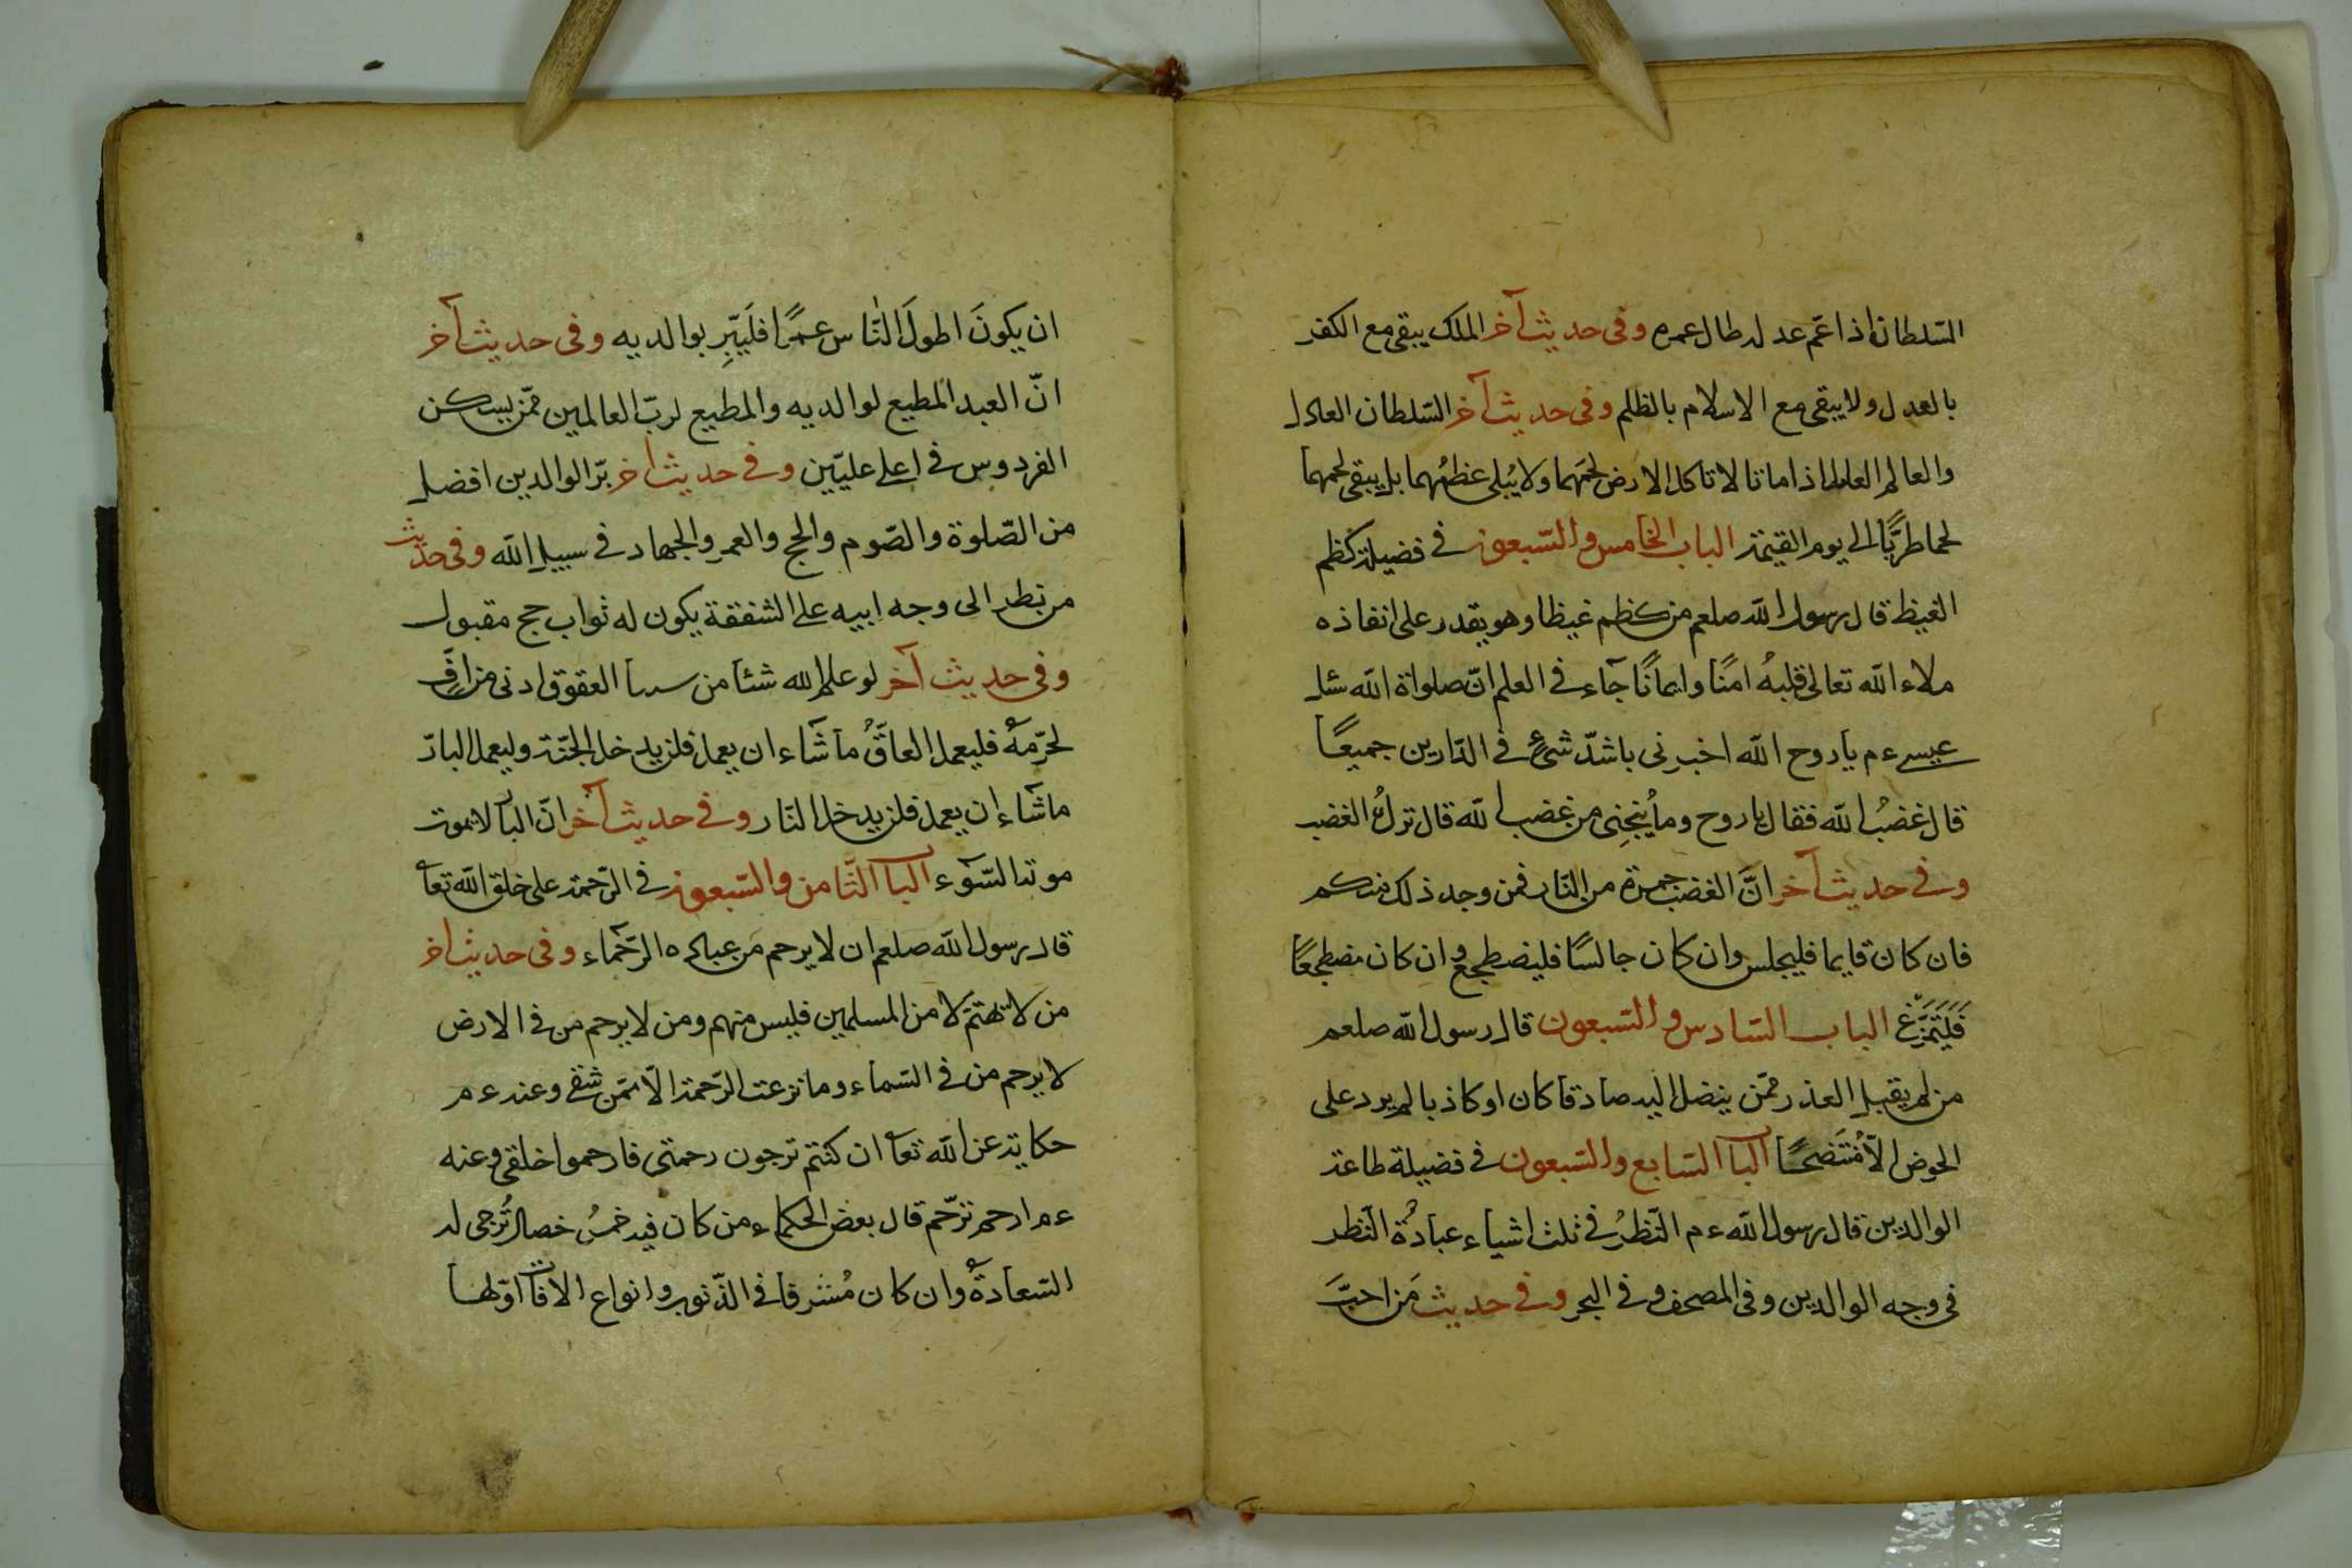 السّلطان اذا عمّ عدله طال عمره وفى حديث آخر الملك يبقى مع الكفر
بالعدل ولا يبقى مع الاسلام بالظلم وفى حديث آخر السّلطان العادل
والعالم العامل اذا ماتا لا تاكل الارض لحمهما ولا يُبلى عظمُهما بل يبقى لحمهما
لحما طريًّا الى يوم القيمة الباب الخامس والسّبعون فى فضيلة كظم
الغيظ قال رسول الله صلعم من كظم غيظا وهو يقدر على انفاذه
ملاء الله تعالى قلبهُ امنًا وايمانًا جآء فى العلم انّ صلواة الله سئل
عيسى ءم يا روح الله اخبرنى باشدّ شىءٍ فى الدّارين جميعًا
قال غضبُ الله فقال يا روح وما يُنجِنِى من غضب الله قال تركُ الغضب
وفى حديث آخر انَّ الغضب جمرة من النّار فمن وجد ذلك منكم
فان كان قايما فليجلس وان كان جالسًا فليضطجع وان كان مضطجعًا
فَلَيَتَمَرَّغ الباب السّادس والسّبعون قال رسول الله صلعم
من لم يقبل العذر ممّن ينضل اليه صادقا كان او كاذبا لم يرد على
الحوض الّا مُتَفَضحًا البا السّابع والسّبعون فى فضيلة طاعة
الوالدين قال رسول الله ءم النّظرُ فى ثلث اشياء عبادةُ النّظر
فى وجه الوالدين وفى المصحف وفى البحر وفى حديث مَن احبَّ
ان يكونَ اطولَ النّاس عمرًا فليَبِّرِ بوالديه وفى حديث آخر
انّ العبد المطيع لوالديه والمطيع لربّ العالمين ممّن يسكن
الفردوس فى اعلى عليّين وفى حديث آخر برّ الوالدين افضل
من الصّلوة والصّوم والحج والعمر والجهاد فى سبيل الله وفى حديث
من نظر الى وجه ابيه على الشفقة يكون له ثواب حج مقبول
وفى حديث آخر لو علم الله شئا من العقوق ادنى من افٍّ
لحرّمهُ فليعمل العاقُّ ما شَاء ان يعمل فلن يدخل الجنّة وليعمل البارّ
ما شاء ان يعمل فلن يدخل النّار وفى حديث آخر انّ البارّ لا يموت
موتة السّوء البا الثّامن والسّبعون فى الرّحمة على خلق الله تعا
قال رسول الله صلعم ان لا يرحم من عباده الرّحماء وفى حديث آخر
من لا تهتمّ لا من المسلمين فليس منهم ومن لا يرحم من فى الارض
لا يرحم من فى السّماء وما نزعت الرّحمة الّا ممّن شقى وعنه ءم
حكاية عن الله تعا ان كنتم ترجون رحمتى فارحموا خلقى وعنه
ءم ارحم ترّحم قال بعض الحكماء من كان فيه خمسُ خصال تُرجى له
السّعادةُ وان كان مُشرفا فى الذّنوب وانواع الافات اوّلها